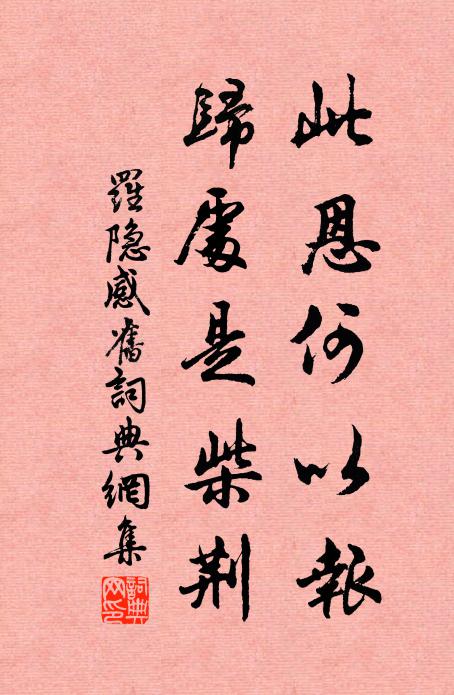 此恩何以報
歸處是柴荆
羅隐感舊詞典網集
詞典网印